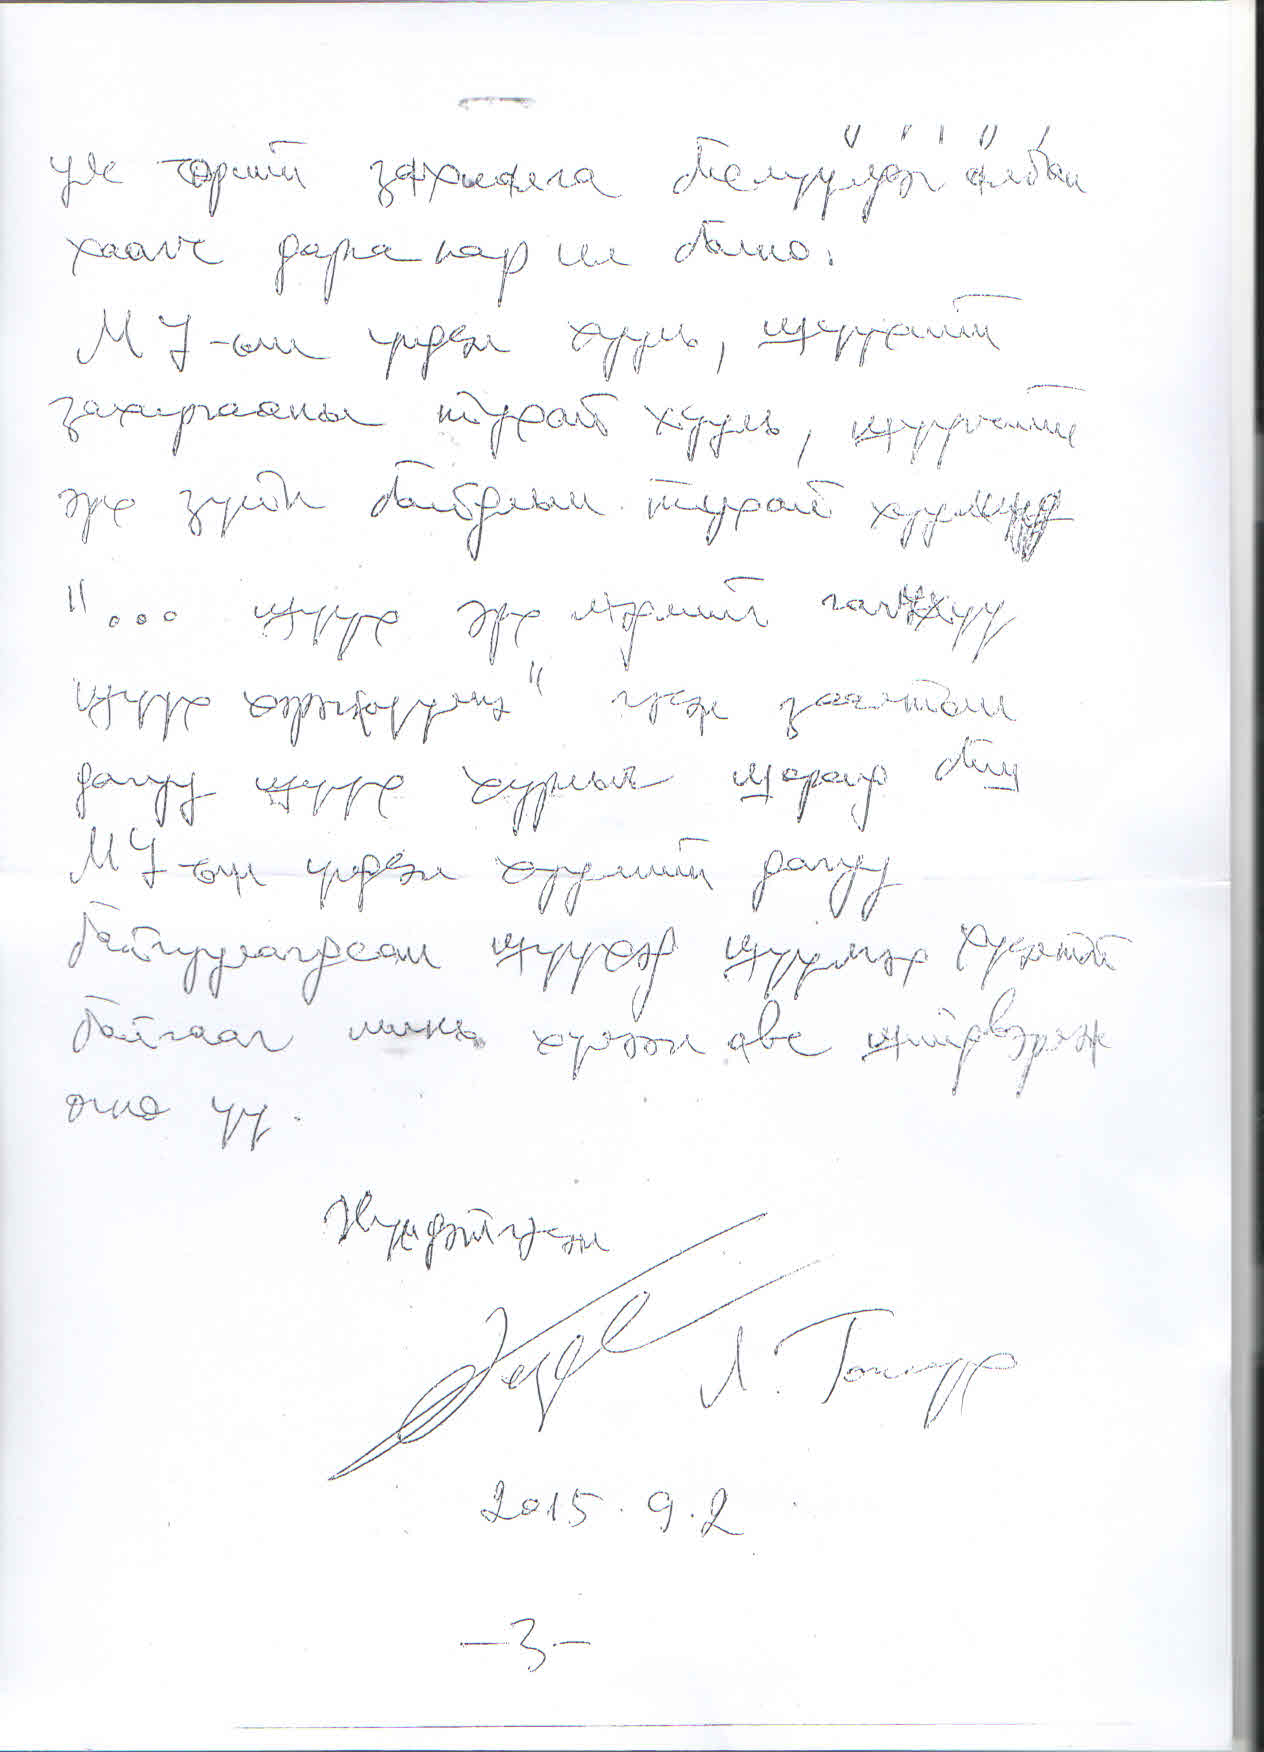 улс төрийн захиалга биелүүлдэг албан
хаагч дарга нар ил болно.
МУ-ын үндсэн хууль, шүүхийн
захиргааны тухай хууль, шүүгчийн
эрх зүйн байдлын тухай хуулиуд
"... шүүх эрх мэдлийг гагцхүү
шүүх хэрэгжүүлнэ" гэж заасны
дагуу шүүх хурлын шороор биш
МУ-ын үндсэн хуулийн дагуу
байгуулагдсан шүүхээр шүүлгэх хүсэлтэй
байгааг минь хүлээн авч шийдвэрлэж
өгнө үү.
Хүндэтгэсэн
Л. Гансүх
2015.9.2
-3-